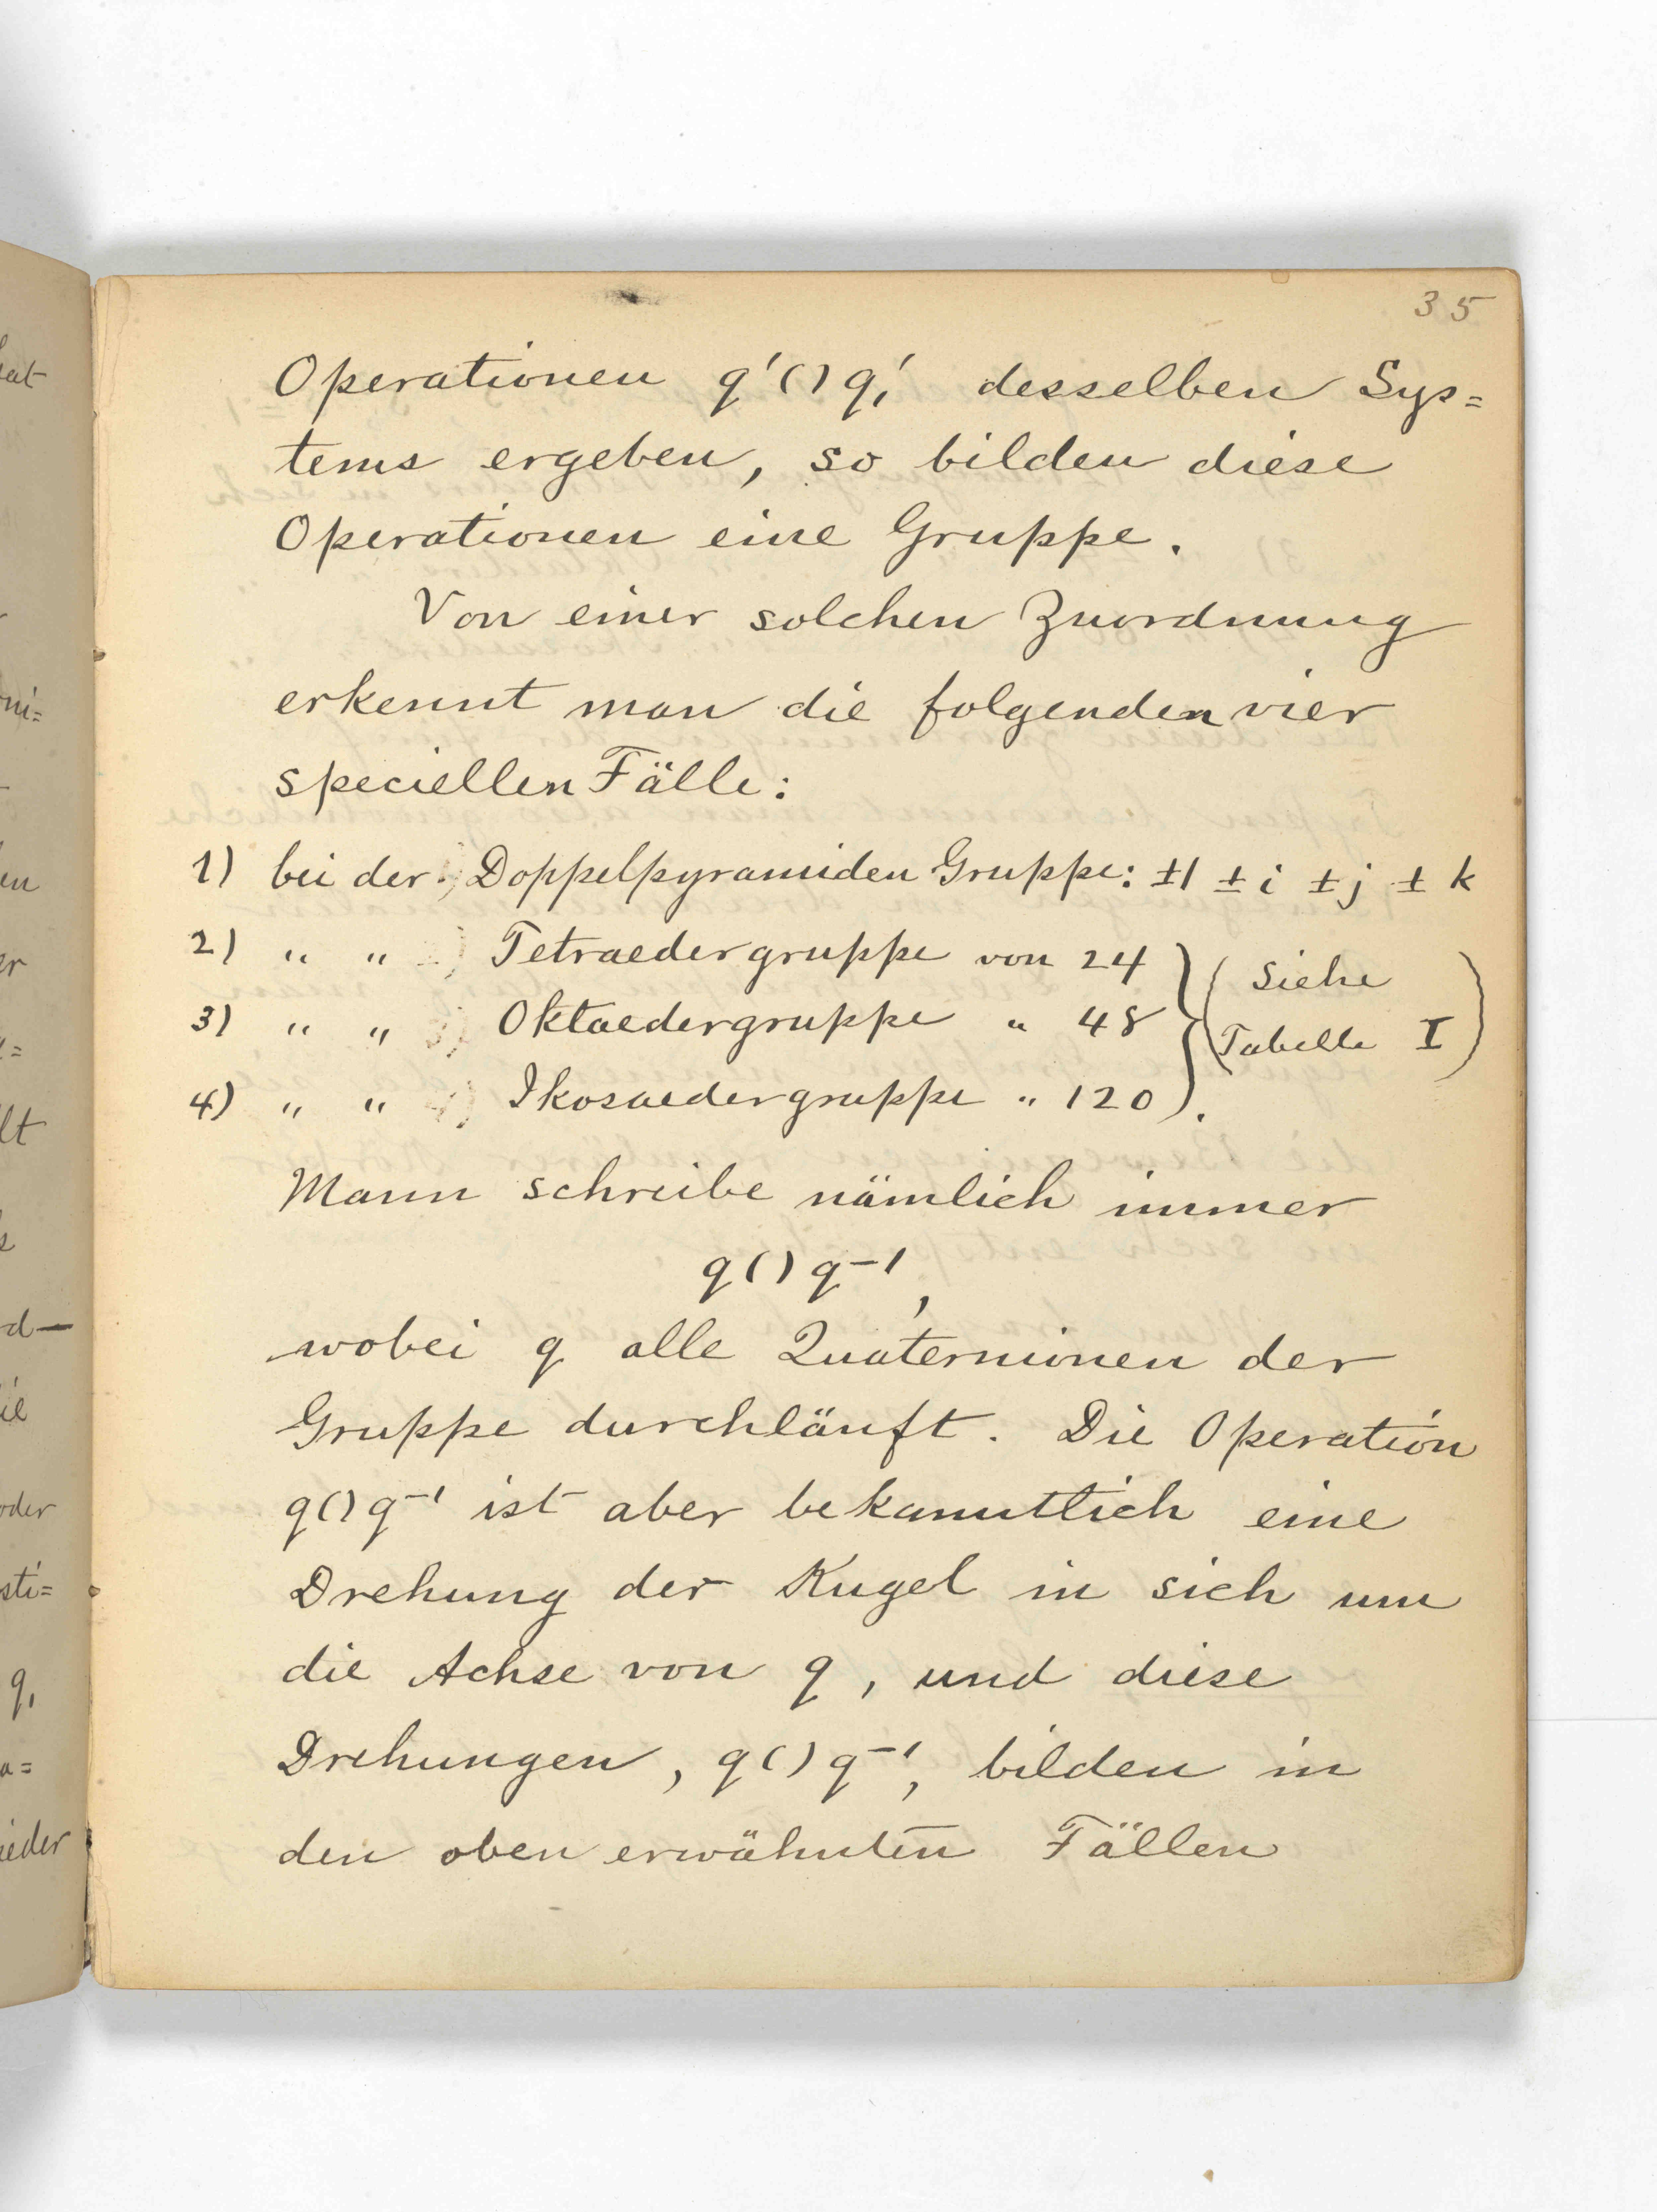 35
Operationen q'()q,' desselben Sys=
tems ergeben, so bilden diese
Operationen eine Gruppe.
Von einer solchen Zuordnung
erkennt man die folgenden vier
speciellen Fälle:
1) bei der Doppelpyramiden Gruppe: ±1 ±i ±j ±k
2) " " Tetraedergruppe von 24 } (Siehe
3) " " Oktaedergruppe " 48 } Tabelle I)
4) " " Ikosaedergruppe " 120 } .
Mann schreibe nämlich immer
q()q⁻¹,
wobei q alle Quaternionen der
Gruppe durchläuft. Die Operation
q()q⁻¹ ist aber bekanntlich eine
Drehung der Kugel in sich um
die Achse von q, und diese
Drehungen, q()q⁻¹, bilden in
den oben erwähnten Fällen